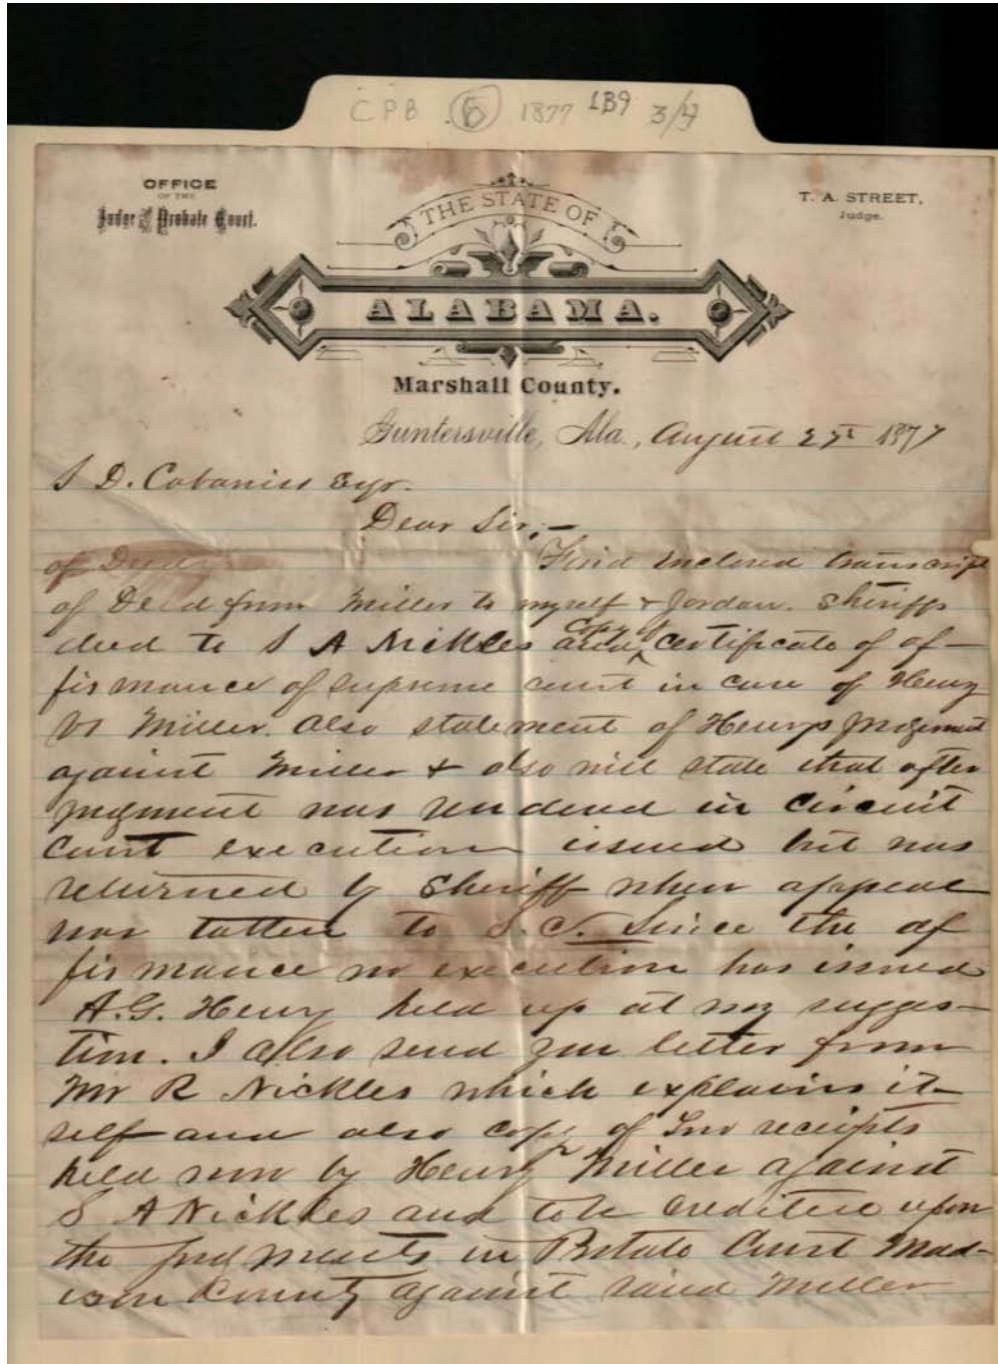 CPB 6 1877 1B9 3/4
OFFICE
OF THE
Judge of the Probate Court.
T. A. STREET,
Judge.
THE STATE OF
ALABAMA.
Marshall County.
Guntersville, Ala., August 27th 1877
S D. Cabaniss Esqr.
Dear Sir;—
of Deed Find Inclosed transcript
of Deed from Miller to myself & Jordan. Sheriffs
deed to S A Nickles and copy of certificate of af-
firmance of supreme court in case of Henry
vs Miller. Also statement of Henrys Judgment
against Miller & also will state that after
judgment was rendered in circuit
court execution issued but was
returned by Sheriff when appeal
was taken to S.C. Since the af
firmance no execution has issued
A.G. Henry held up at my sugges-
tion. I also send you letter from
Mr R Nickles which explains it-
self and also copy of two receipts
held now by Henry Miller against
S A Nickles and to be credited upon
the judgments in Probate Court Mad-
ison County against said Miller